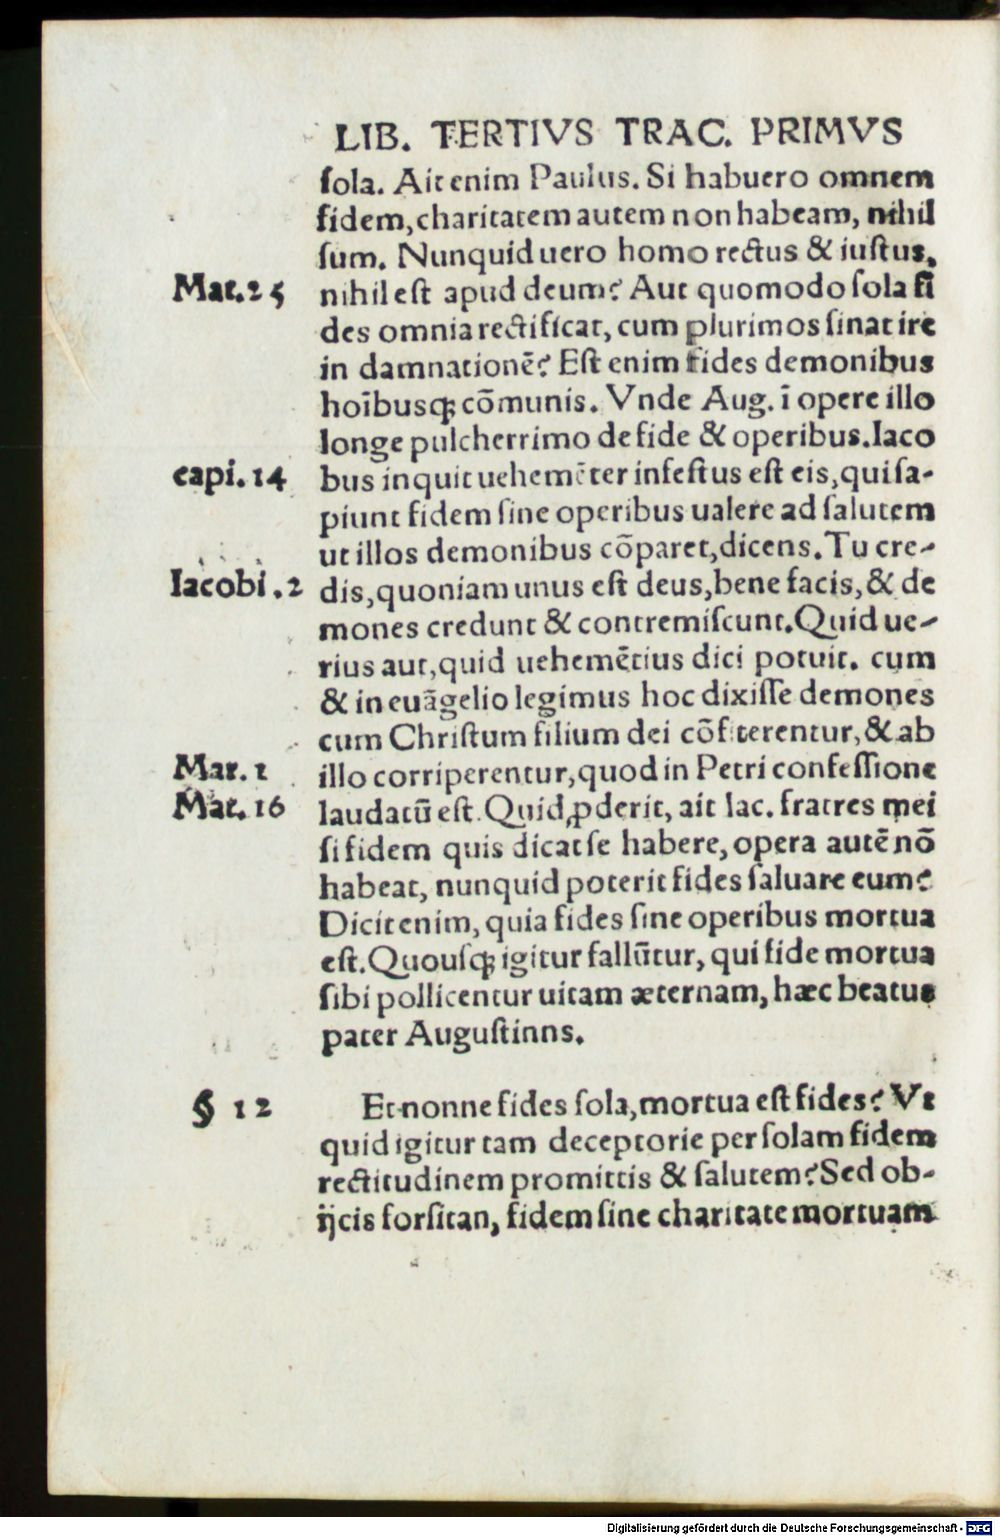 LIB. TERTIVS TRAC. PRIMVS
ſola. Ait enim Paulus. Si habuero omnem
fidem, charitatem autem non habeam, nihil
ſum. Nunquid uero homo rectus & iuſtus,
Mat. 25
nihil eſt apud deum? Aut quomodo ſola fi
des omnia rectificat, cum plurimos ſinat ire
in damnationē? Eſt enim fides demonibus
hoībusqꝫ cōmunis. Vnde Aug. ī opere illo
longe pulcherrimo de fide & operibus. Iaco
capi. 14
bus inquit uehemēter infeſtus eſt eis, qui ſa-
piunt fidem ſine operibus ualere ad ſalutem
ut illos demonibus cōparet, dicens. Tu cre-
Iacobi. 2
dis, quoniam unus eſt deus, bene facis, & de
mones credunt & contremiſcunt. Quid ue-
rius aut, quid uehemētius dici potuit. cum
& in euāgelio legimus hoc dixiſſe demones
cum Chriſtum filium dei cōfiterentur, & ab
Mar. 1
illo corriperentur, quod in Petri confeſſione
Mat. 16
laudatū eſt. Quid ꝓderit, ait Iac. fratres mei
ſi fidem quis dicat ſe habere, opera autē nō
habeat, nunquid poterit fides ſaluare eum?
Dicit enim, quia fides ſine operibus mortua
eſt. Quouſqꝫ igitur fallūtur, qui fide mortua
ſibi pollicentur uitam æternam, hæc beatus
pater Auguſtinns.
§ 12
Et nonne fides ſola, mortua eſt fides? Vt
quid igitur tam deceptorie per ſolam fidem
rectitudinem promittis & ſalutem? Sed ob-
ijcis forſitan, fidem ſine charitate mortuam
Digitalisierung gefördert durch die Deutsche Forschungsgemeinschaft - DFG